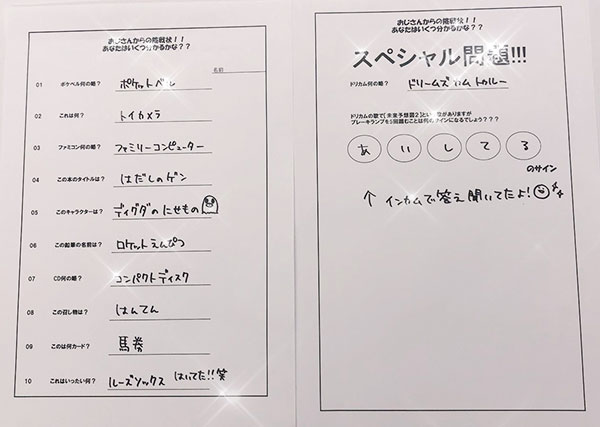 おじさんからの挑戦状！！
あなたはいくつ分かるかな？？
名前
01 ポケベル何の略? ポケットベル
02 これは何? トイカメラ
03 ファミコン何の略? ファミリーコンピューター
04 この本のタイトルは? はだしのゲン
05 このキャラクターは? ディグダのにせもの
06 この鉛筆の名前は? ロケットえんぴつ
07 CD何の略? コンパクトディスク
08 この召し物は? はんてん
09 このは何カード? 馬券
10 これはいったい何? ルーズソックス はいてた!!笑
おじさんからの挑戦状！！
あなたはいくつ分かるかな？？
スペシャル問題!!!
ドリカム何の略? ドリームズカムトゥルー
ドリカムの歌で[未来予想図2]という がありますが
ブレーキランプを5回踏むことは何のサインになるでしょう???
あ い し て る
のサイン
↑ インカムで答え聞いてたよ!